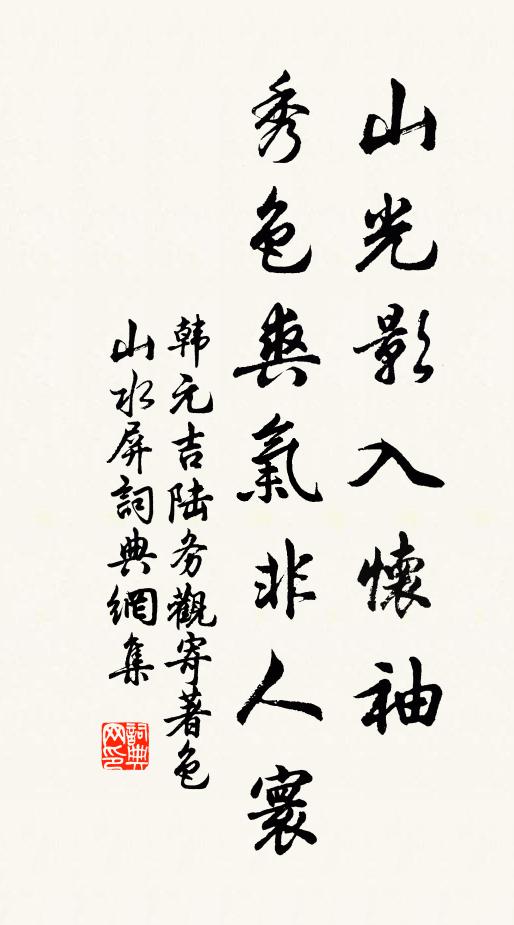 山光影入懷袖
秀色爽氣非人寰
韩元吉陆务觀寄著色
山水屏詞典網集
詞典网印